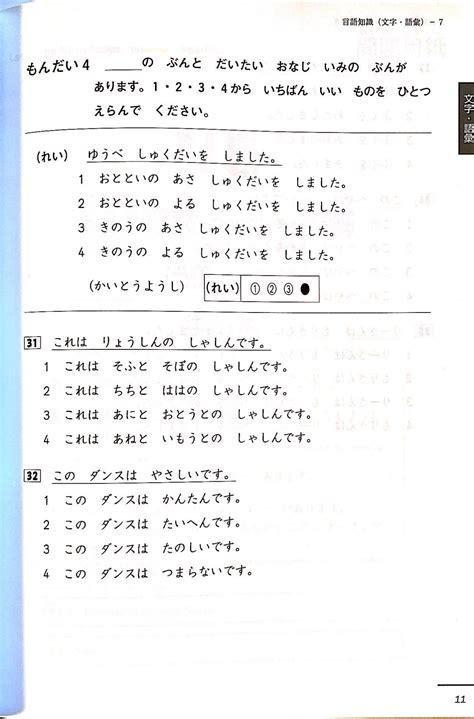 言語知識（文字・語彙）− 7
もんだい4　＿＿＿の　ぶんと　だいたい　おなじ　いみの　ぶんが
あります。1・2・3・4から　いちばん　いい　ものを　ひとつ
えらんで　ください。
文字・語彙
（れい）　ゆうべ　しゅくだいを　しました。
1　おとといの　あさ　しゅくだいを　しました。
2　おとといの　よる　しゅくだいを　しました。
3　きのうの　あさ　しゅくだいを　しました。
4　きのうの　よる　しゅくだいを　しました。
（かいとうようし）　（れい）　①　②　③　●
31　これは　りょうしんの　しゃしんです。
1　これは　そふと　そぼの　しゃしんです。
2　これは　ちちと　ははの　しゃしんです。
3　これは　あにと　おとうとの　しゃしんです。
4　これは　あねと　いもうとの　しゃしんです。
32　この　ダンスは　やさしいです。
1　この　ダンスは　かんたんです。
2　この　ダンスは　たいへんです。
3　この　ダンスは　たのしいです。
4　この　ダンスは　つまらないです。
11